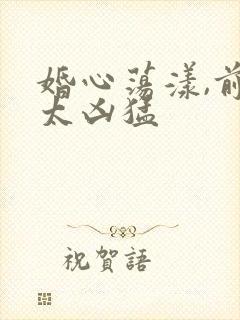 婚心荡漾,前
太凶猛
祝賀語